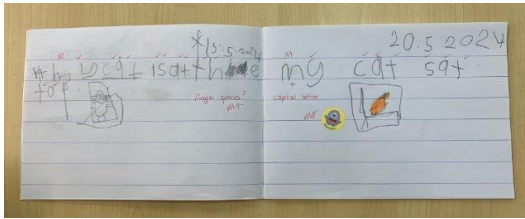 15.5.2024
my cat isat
top
finger spaces?
20.5.2024
my cat sat.
capital letter